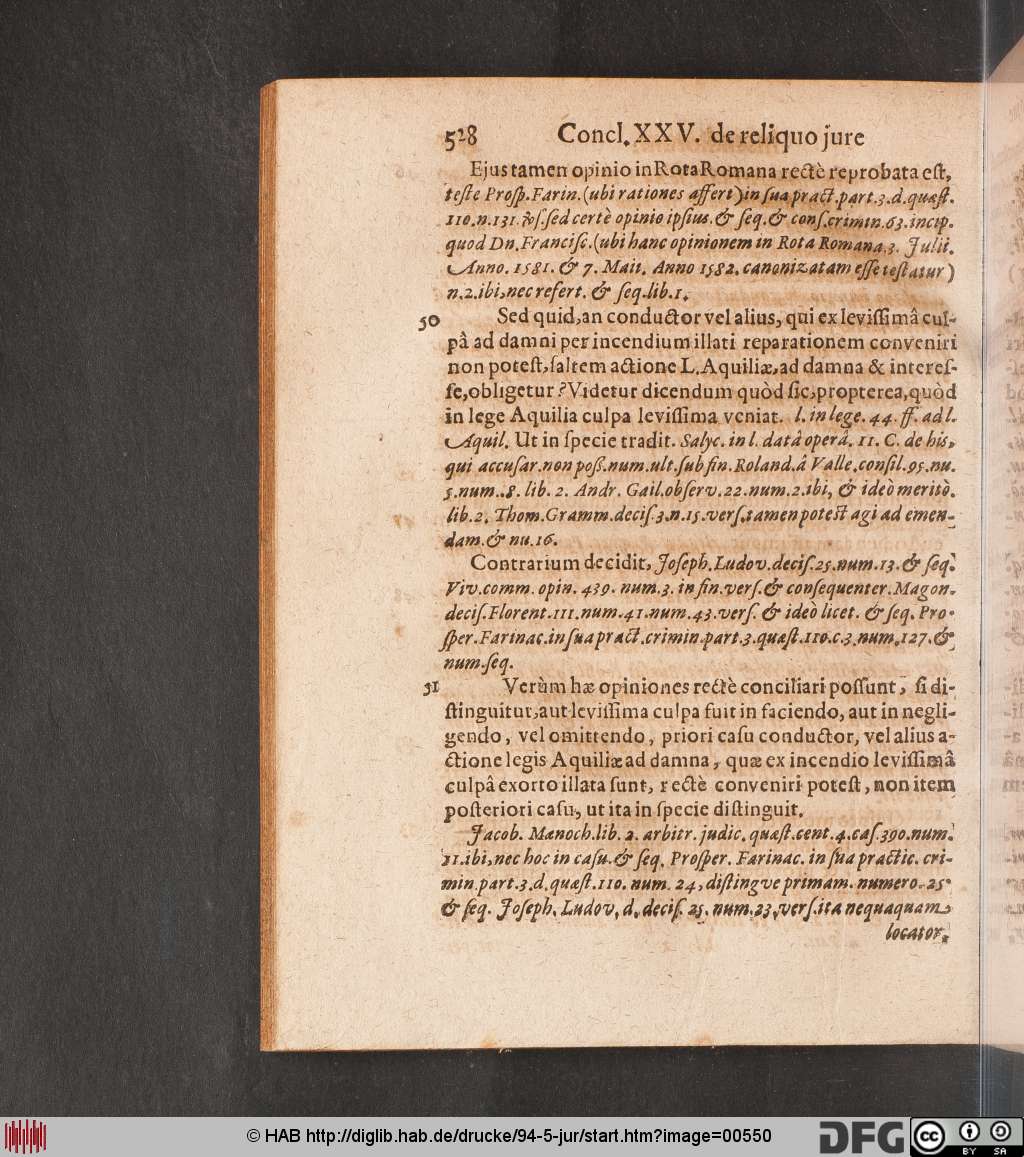 528 Concl. XXV. de reliquo jure
Ejus tamen opinio in Rota Romana rectè reprobata est,
teste Prosp. Farin. (ubi rationes affert) in sua pract. part. 3. d. quæst.
110. n. 131. sed certè opinio ipsius. & seq. & cons. crimin. 63. incip.
quod Dn. Francisc. (ubi hanc opinionem in Rota Romana 3. Julii.
Anno. 1581. & 7. Maii. Anno 1582. canonizatam esse testatur)
n. 2. ibi, nec refert. & seq. lib. 1.
50 Sed quid, an conductor vel alius, qui ex levissimâ cul-
pâ ad damni per incendium illati reparationem conveniri
non potest, saltem actione L. Aquiliæ, ad damna & interes-
se, obligetur? Videtur dicendum quòd sic, propterea, quòd
in lege Aquilia culpa levissima veniat. l. in lege. 44. ff. ad l.
Aquil. Ut in specie tradit. Salyc. in l. datâ operâ. 11. C. de his,
qui accusar. non poß. num. ult. sub fin. Roland. â Valle. consil. 95. nu.
5. num. 8. lib. 2. Andr. Gail. observ. 22. num. 2. ibi, & ideò meritò.
lib. 2. Thom. Gramm. decis. 3. n. 15. vers. tamen potest agi ad emen-
dam. & nu. 16.
Contrarium decidit, Joseph. Ludov. decis. 25. num. 13. & seq.
Viv. comm. opin. 439. num. 3. in fin. vers. & consequenter. Magon.
decis. Florent. 111. num. 41. num. 43. vers. & ideò licet. & seq. Pro-
sper. Farinac. in sua pract. crimin. part. 3. quæst. 110. c. 3. num. 127. &
num. seq.
51 Verùm hæ opiniones rectè conciliari possunt, si di-
stinguitur, aut levissima culpa fuit in faciendo, aut in negli-
gendo, vel omittendo, priori casu conductor, vel alius a-
ctione legis Aquiliæ ad damna, quæ ex incendio levissimâ
culpâ exorto illata sunt, rectè conveniri potest, non item
posteriori casu, ut ita in specie distinguit.
Jacob. Manoch. lib. 2. arbitr. judic. quæst. cent. 4. cas. 390. num.
31. ibi, nec hoc in casu. & seq. Prosper. Farinac. in sua practic. cri-
min. part. 3. d. quæst. 110. num. 24, distingve primam. numero. 25.
& seq. Joseph. Ludov. d. decis. 25. num. 23. vers. ita nequaquam
locator.
© HAB http://diglib.hab.de/drucke/94-5-jur/start.htm?image=00550
DFG
cc
BY SA